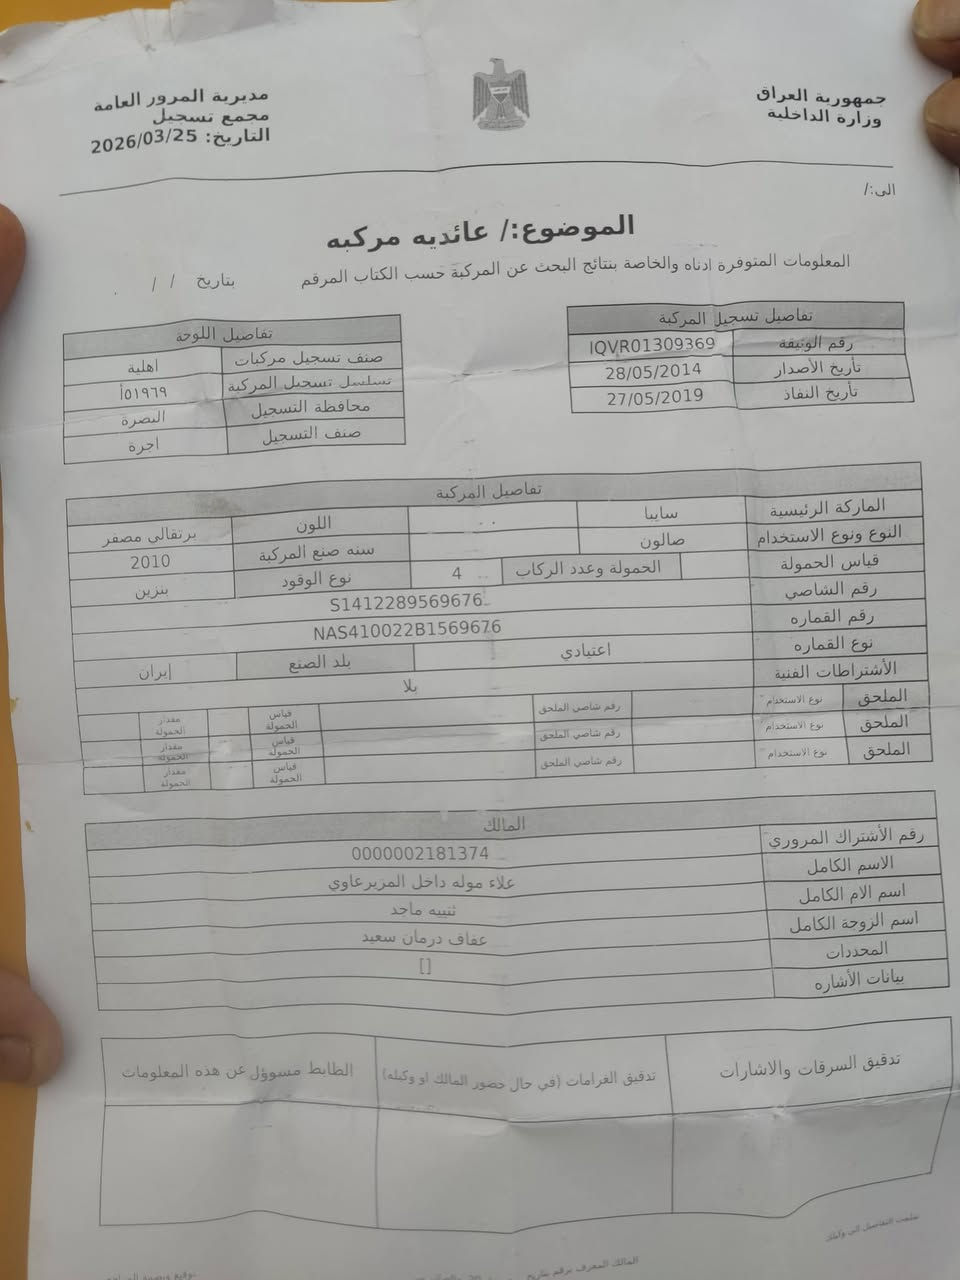 جمهورية العراق
وزارة الداخلية
مديرية المرور العامة
مجمع تسجيل
التاريخ: 2026/03/25
الى:/
الموضوع:/ عائديه مركبه
المعلومات المتوفرة ادناه والخاصة بنتائج البحث عن المركبة حسب الكتاب المرقم بتاريخ / / .
تفاصيل تسجيل المركبة
رقم الوثيقة IQVR01309369
تأريخ الأصدار 28/05/2014
تأريخ النفاذ 27/05/2019
تفاصيل اللوحة
صنف تسجيل مركبات اهلية
تسلسل تسجيل المركبة ٥١٩٦٩أ
محافظة التسجيل البصرة
صنف التسجيل اجرة
تفاصيل المركبة
الماركة الرئيسية سايبا اللون برتقالي مصفر
النوع ونوع الاستخدام صالون سنه صنع المركبة 2010
قياس الحمولة الحمولة وعدد الركاب 4 نوع الوقود بنزين
رقم الشاصي S1412289569676
رقم القماره NAS410022B1569676
نوع القماره اعتيادي بلد الصنع إيران
الأشتراطات الفنية بلا
الملحق نوع الاستخدام رقم شاصي الملحق قياس الحمولة مقدار الحمولة
الملحق نوع الاستخدام رقم شاصي الملحق قياس الحمولة مقدار الحمولة
الملحق نوع الاستخدام رقم شاصي الملحق قياس الحمولة مقدار الحمولة
المالك
رقم الأشتراك المروري 0000002181374
الاسم الكامل علاء موله داخل المزيرعاوي
اسم الام الكامل ثنييه ماجد
اسم الزوجة الكامل عفاف درمان سعيد
المحددات []
بيانات الأشاره
تدقيق السرقات والاشارات
تدقيق الغرامات (في حال حضور المالك او وكيله)
الظابط مسوؤل عن هذه المعلومات
المالك المعرف برقم بتاريخ